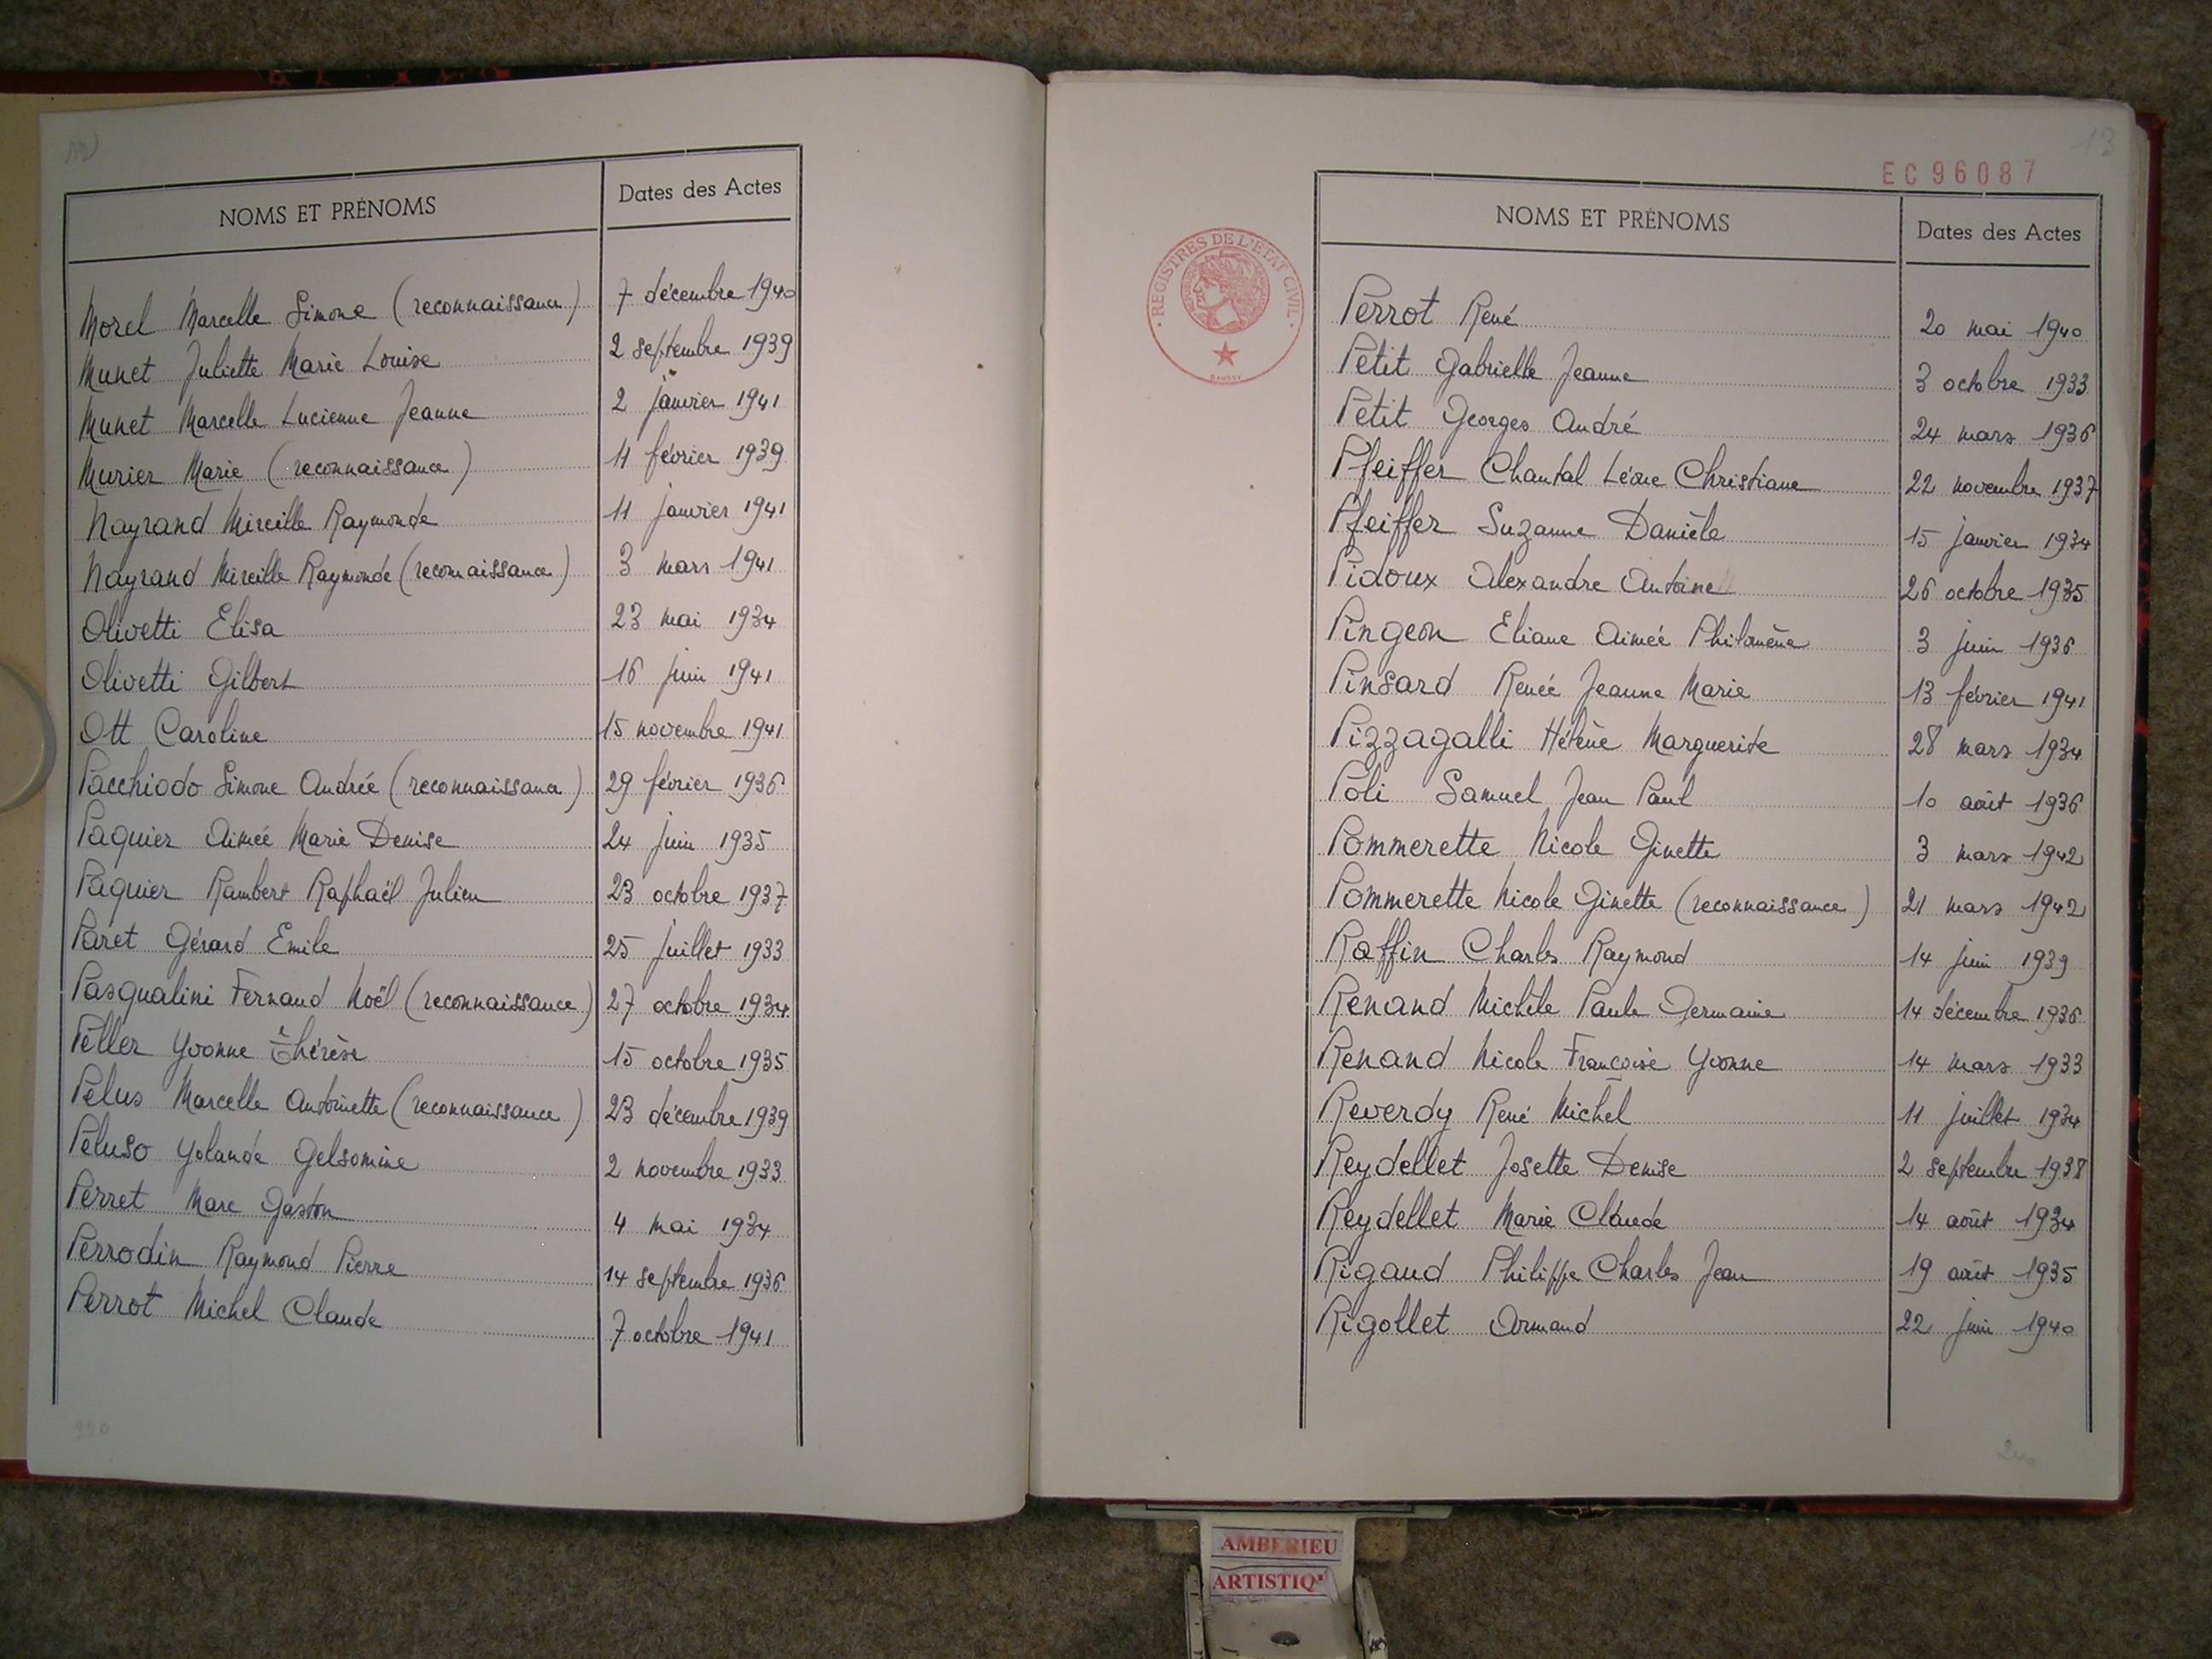 12
NOMS ET PRÉNOMS Dates des Actes
Morel Marcelle Simone (reconnaissance) 7 décembre 1940
Munet Juliette Marie Louise 2 septembre 1939
Munet Marcelle Lucienne Jeanne 2 janvier 1941
Murier Marie (reconnaissance) 11 février 1939
Nayrand Mireille Raymonde 11 janvier 1941
Nayrand Mireille Raymonde (reconnaissance) 3 mars 1941
Olivetti Elisa 23 mai 1934
Olivetti Gilbert 16 juin 1941
Ott Caroline 15 novembre 1941
Pacchiodo Simone Andrée (reconnaissance) 29 février 1936
Paquier Aimée Marie Denise 24 juin 1935
Paquier Rambert Raphaël Julien 23 octobre 1937
Paret Gérard Emile 25 juillet 1933
Pasqualini Fernand Noël (reconnaissance) 27 octobre 1934
Peller Yvonne Thérèse 15 octobre 1935
Pelus Marcelle Antoinette (reconnaissance) 23 décembre 1939
Peluso Yolande Gelsomine 2 novembre 1933
Perret Marc Gaston 4 mai 1934
Perrodin Raymond Pierre 14 septembre 1936
Perrot Michel Claude 7 octobre 1941
13
EC 96087
REGISTRES DE L'ÉTAT CIVIL
NOMS ET PRÉNOMS Dates des Actes
Perrot René 20 mai 1940
Petit Gabrielle Jeanne 3 octobre 1933
Petit Georges André 24 mars 1936
Pfeiffer Chantal Léone Christiane 22 novembre 1937
Pfeiffer Suzanne Danièle 15 janvier 1934
Pidoux Alexandre Antoine 26 octobre 1935
Pingeon Eliane Aimée Philomène 3 juin 1936
Pinsard Renée Jeanne Marie 13 février 1941
Pizzagalli Hélène Marguerite 28 mars 1934
Poli Samuel Jean Paul 10 août 1936
Pommerette Nicole Ginette 3 mars 1942
Pommerette Nicole Ginette (reconnaissance) 21 mars 1942
Raffin Charles Raymond 14 juin 1939
Renand Michèle Paule Germaine 14 décembre 1936
Renand Nicole Françoise Yvonne 14 mars 1933
Reverdy René Michel 11 juillet 1934
Reydellet Josette Denise 2 septembre 1938
Reydellet Marie Claude 14 août 1934
Rigaud Philippe Charles Jean 19 août 1935
Rigollet Armand 22 juin 1940
AMBERIEU
ARTISTIQ